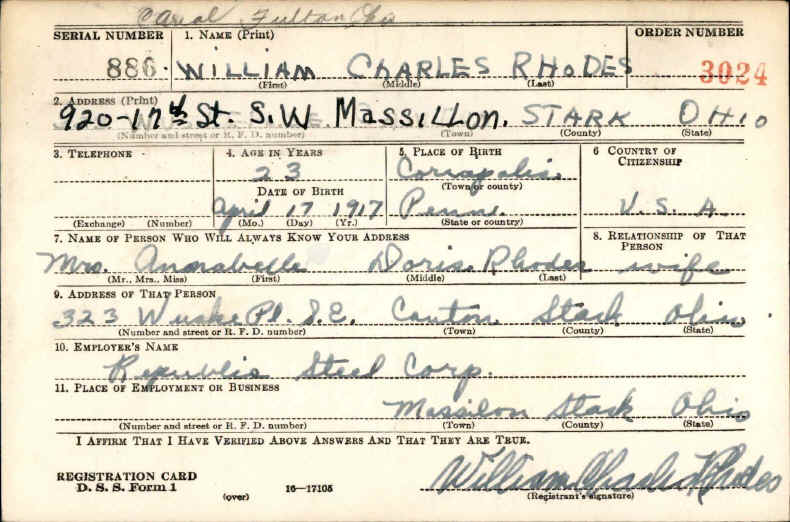 Canal Fulton Ohio
SERIAL NUMBER 1. NAME (Print) ORDER NUMBER
886 WILLIAM CHARLES RHODES 3024
(First) (Middle) (Last)
2. ADDRESS (Print)
920-17th St. S.W. MASSILLON. STARK OHIO
(Number and street or R. F. D. number) (Town) (County) (State)
3. TELEPHONE 4. AGE IN YEARS 5. PLACE OF BIRTH 6 COUNTRY OF CITIZENSHIP
23 Coraopolis
DATE OF BIRTH (Town or county)
April 17 1917 Penn. U. S. A.
(Exchange) (Number) (Mo.) (Day) (Yr.) (State or country)
7. NAME OF PERSON WHO WILL ALWAYS KNOW YOUR ADDRESS 8. RELATIONSHIP OF THAT PERSON
Mrs. Annabelle Doris Rhodes wife
(Mr., Mrs., Miss) (First) (Middle) (Last)
9. ADDRESS OF THAT PERSON
323 Pl. S.E. Canton Stark Ohio
(Number and street or R. F. D. number) (Town) (County) (State)
10. EMPLOYER'S NAME
Republic Steel Corp.
11. PLACE OF EMPLOYMENT OR BUSINESS
Massilon Stark Ohio
(Number and street or R. F. D. number) (Town) (County) (State)
I AFFIRM THAT I HAVE VERIFIED ABOVE ANSWERS AND THAT THEY ARE TRUE.
REGISTRATION CARD William Charles Rhodes
D. S. S. Form 1 (over) 16-17105 (Registrant's signature)